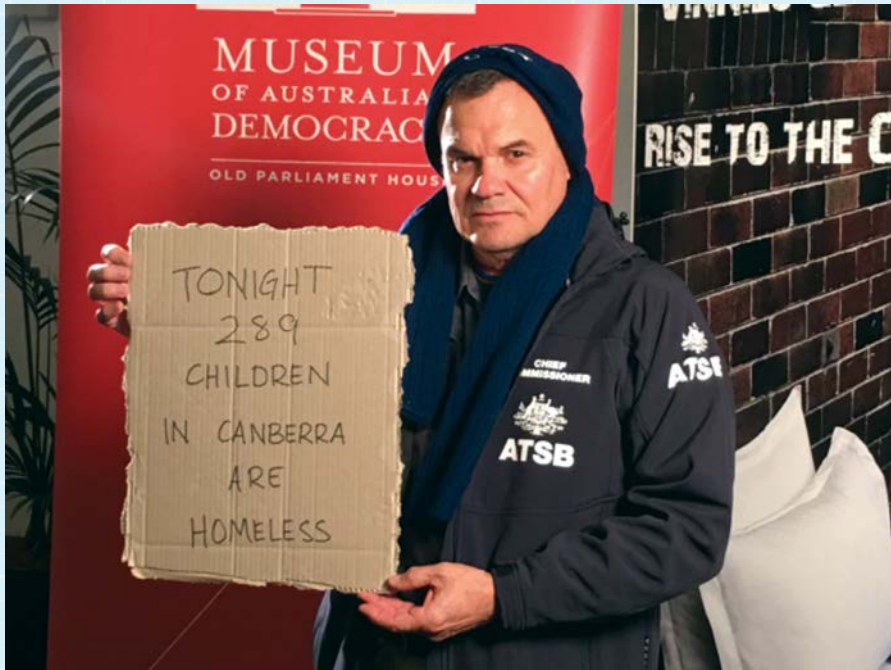 MUSEUM
OF AUSTRALIA
DEMOCRAC
OLD PARLIAMENT HOUS
RISE TO THE C
TONIGHT
289
CHILDREN
IN CANBERRA
ARE
HOMELESS
CHIEF
MMISSIONER
ATSB
ATSB